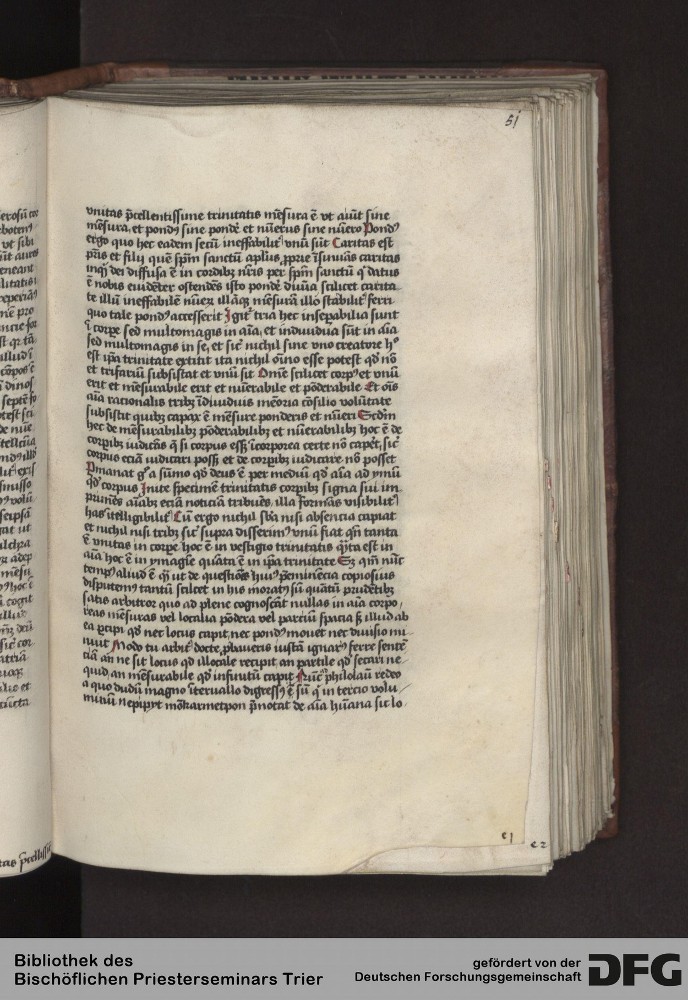 51
vnitas p̄cellentissime trinitatis mēsura ē vt aiūt sine
mēsura, et pondꝰ sine pondē et nūerus sine nūero Pondꝰ
ergo quo hec eadem secū ineffabilit᷑ vnū sūt Caritas est
pr̄is et filij quē sp̄m sanctū apl̄us ꝓprie īsinuās caritas
inqͥ dei diffusa ē in cordibꝫ nr̄is per sp̄m sanctū qͥ datus
ē nobis euidēter ostendēs isto pondē diuīa scilicet carita
te illū ineffabilē nūeꝝ illāqꝫ mēsurā illo stabilit᷑ ferri
quo tale pondꝰ accesserit Igit᷑ tria hec insepabilia sunt
ī corpe sed multomagis in aīa, et indiuidua sūt in aīa
sed multomagis in se, et sic̄ nichil sine vno creatore hꝰ
est ip̄a trinitate extitit ita nichil oīno esse potest qd̓ nō
et trifariū subsistat et vnū sit Omē scilicet corpꝰ et vnū
erit et mēsurabile erit et nūerabile et pōderabile Et oīs
aīa racionalis tribꝫ īdiuiduis mēoria cōsilio volūtate
subsistit quibꝫ capax ē mēsure ponderis et nūeri Scdm̄
hec de mēsurabilibꝫ pōderabilibꝫ et nūerabilibꝫ hoc ē de
corpibꝫ iudicās q̄ si corpus esset īcorporea certe nō capet, sic̄
corpus eciā iudicari posset et de corpibꝫ iudicare nō posset
Pmanat gͦ a sūmo qd̓ deus ē per mediū qd̓ aīa ad ymū
qd̓ corpus Inite specimē trinitatis corpibꝫ signa sui im
primēs aīabꝫ eciā noticiā tribuēs, illa formās visibilit᷑
has ītelligibilit᷑ Cū ergo nichil sb̄a nisi absencia capiat
et nichil nisi tribꝫ sic̄ supra disserimꝰ vnū fiat qn̄ tanta
ē vnitas in corpe hoc ē in vestigio trinitatis qͣ̄ta est in
aīa hoc ē in ymagīe quāta ē in ip̄a trinitate Sꝫ qm̄ nūc
tempꝰ aliud ē qͣ̄ ut de questiōis huiꝰ p̄eminēcia copiosius
disputemꝰ tantū scilcet in his moratꝰ sū quātū prudētibꝫ
satis arbitror quo ad plene cognoscāt nullas in aīa corpo/
reas mēsuras vel localia pōdera vel parciū spacia sꝫ illud ab
ea ꝑcipi qd̓ nec locus capit, nec pondꝰ mouet nec diuisio mi
nuit Modo tu arbit᷑ docte, ꝓbaueris iustā ignarꝰ ferre sentē
ciā an ne sit locus qd̓ illocale recipit an partile qd̓ secari ne/
quid, an mēsurabile qd̓ infinitū capit Nūc ad philolaū redeo
a quo dudū magno īteruallo digressꝰ sū qͥ in tercio volu/
minū n epipyt mōkarmetpon p̄notat de aīa hūana sic lo/
c 1
c 2
Bibliothek des
Bischöflichen Priesterseminars Trier
gefördert von der
Deutschen Forschungsgemeinschaft
DFG